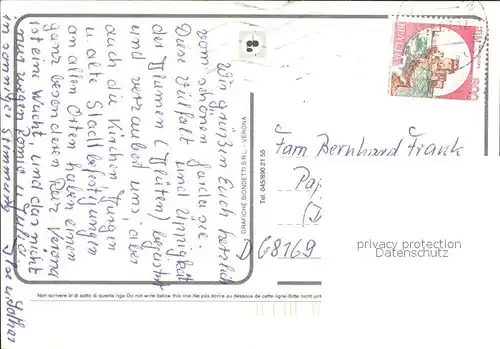 Wir grüßen Euch herzlich
vom schönen Gardasee.
Diese Vielfalt und Üppigkeit
der Blumen (Blüten) begeistert
und verzaubert uns; aber
auch die Kirchen, Burgen
u. alte Stadtbefestigungen
an allen Orten haben einen
ganz besonderen Reiz. Verona
ist eine Wucht, und das nicht
nur wegen Romeo u. Julia
In sonniger Stimmung
GRAFICHE BIONDETTI S.R.L. - VERONA
Tel. 045/890 21 55
ITALIA
500
Fam Bernhard Frank
Pap
D 68169
privacy protection
Datenschutz
Non scrivere al di sotto di questa riga-Do not write below this line-Ne pas écrire au dessous de cette ligne-Bitte nicht unt